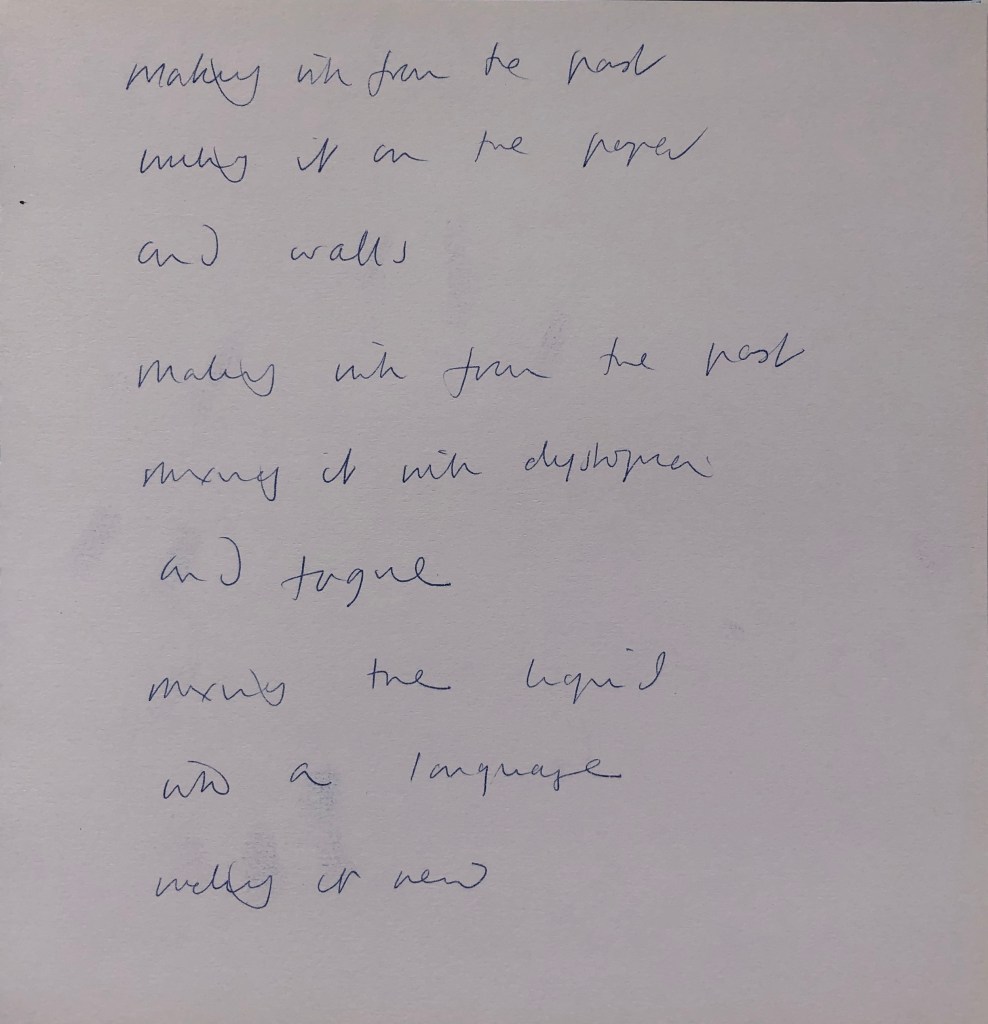 making ink from the past
making it on the paper
and walls
making ink from the past
mixing it with dystopia
and tongue
mixing the liquid
into a language
making it new